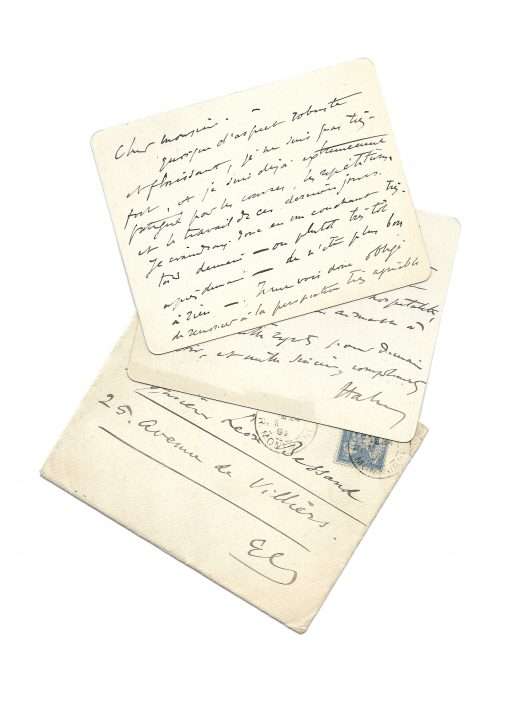 Cher Monsieur. —
quoique d'aspect robuste
et florissant, je ne suis pas très-
fort, et je suis déjà extrêmement
fatigué par les courses, les répétitions
et le travail de ces derniers jours.
Je craindrais donc en me couchant très-
tard demain — ou plutôt très-tôt
après-demain — de n'être plus bon
à rien — Je me vois donc obligé
de renoncer à la perspective très agréable
hospitalité,
regrets pour demain
et mille sincères compliments
Hahn
Monsieur Léon Bessand
25. Avenue de Villiers.
EV